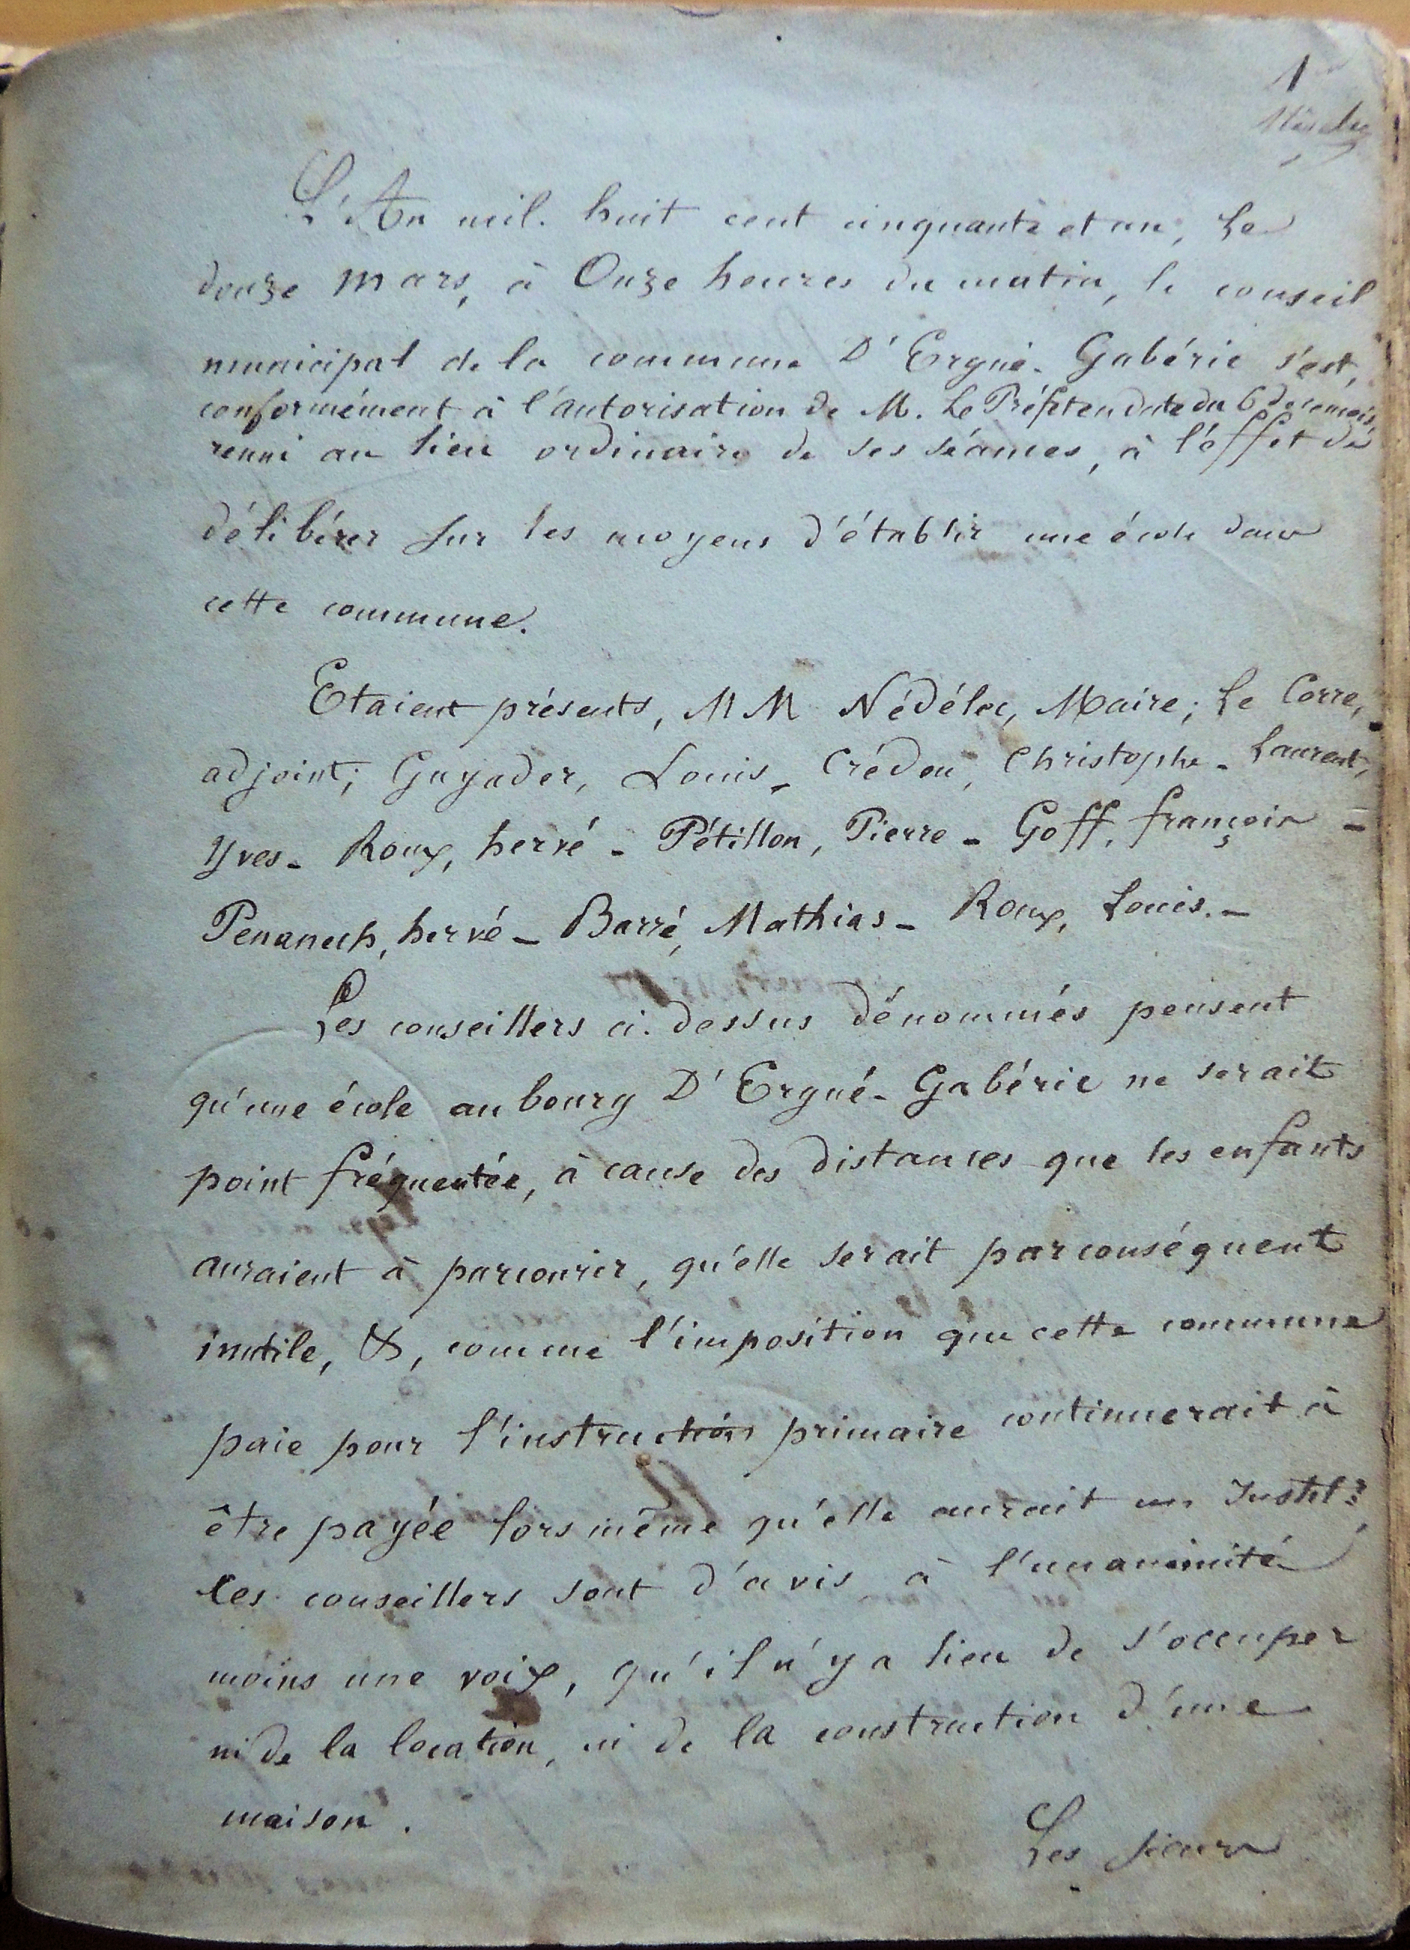 1
Nédélec
L'An mil. huit cent cinquante et un, Le
douze Mars, à Onze heures du matin, le conseil
municipal de la commune D'Ergué-Gabéric s'est,
conformément à l'autorisation de M. Le Préfet en date du 6 de ce mois,
reuni au lieu ordinaire de ses séances, à l'effet de
délibérer sur les moyens d'établir une école dans
cette commune.
Etaient présents, MM Nédélec, Maire; Le Corre,
adjoint; Guyader, Louis - Crédou, Christophe - Laurent,
Yves - Roux, hervé - Pétillon, Pierre - Goff, françois -
Penanech, hervé - Barré, Mathias - Roux, Louis. -
Les conseillers ci-dessus dénommés pensent
qu'une école au bourg D'Ergué-Gabéric ne serait
point fréquentée, à cause des distances que les enfants
auraient à parcourir, qu'elle serait parconséquent
inutile, &, comme l'imposition que cette commune
paie pour l'instruction primaire continuerait à
être payée lors même qu'elle aurait un Instit.r,
les conseillers sont d'avis, à l'unanimité
moins une voix, qu'il n'y a lieu de s'occuper
ni de la location, ni de la construction d'une
maison.
Les sieurs